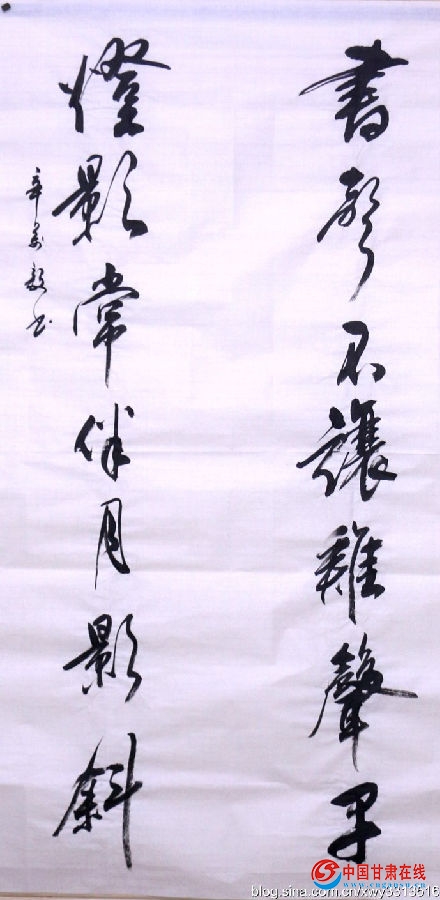 書声不讓雞聲早
燈影常伴月影斜
辛 毅书
中国甘肃在线
blog.sina.com.cn/xwy3313516